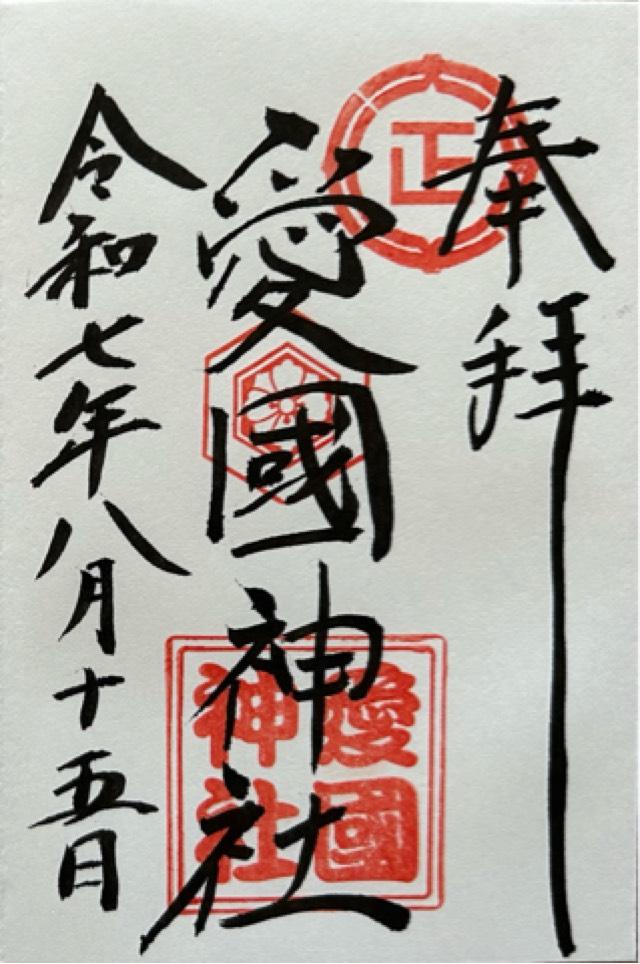 奉拝
正
愛國神社
愛國
神社
令和七年八月十五日